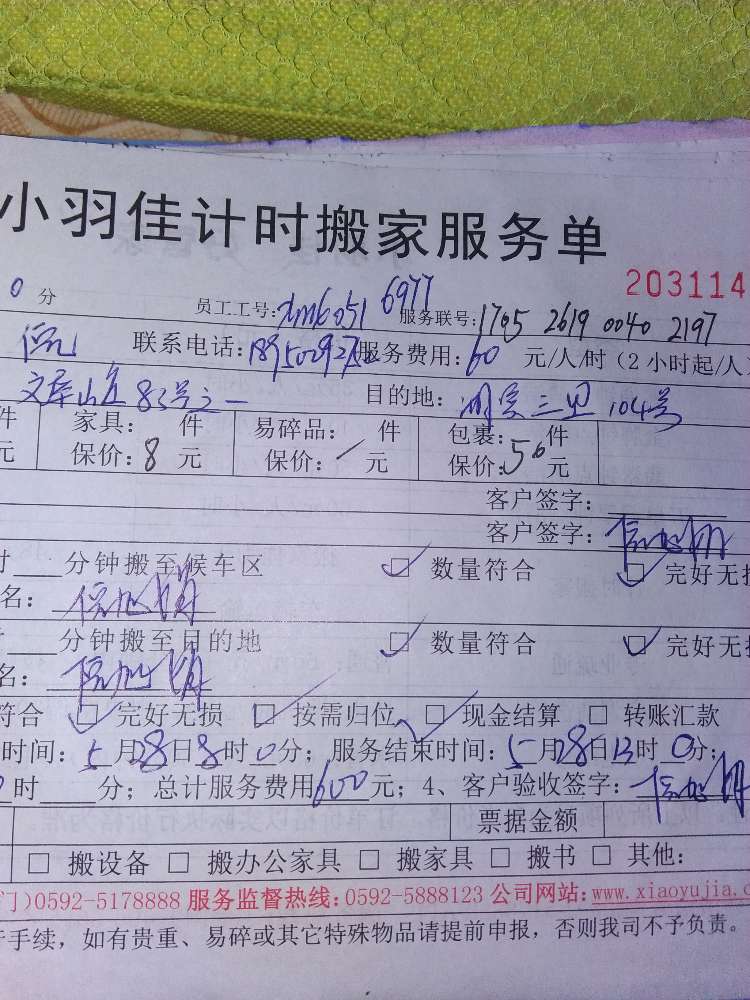 小羽佳计时搬家服务单
203114
0 分 员工工号: 6977 服务联号:1705 2619 0040 2197
联系电话: 服务费用:60 元/人/时（2小时起/人
83号之一 目的地: 三里 104号
件 家具: 件 易碎品: 件 包裹: 件
元 保价:8 元 保价:/ 元 保价:50 元
客户签字:
客户签字:
时 分钟搬至候车区 ☑ 数量符合 ☑ 完好无损
名:
时 分钟搬至目的地 ☑ 数量符合 ☑ 完好无损
名:
符合 ☑ 完好无损 ☑ 按需归位 ☑ 现金结算 □ 转账汇款
时间: 5月28日8时0分; 服务结束时间: 5月28日13时0分;
时 分; 总计服务费用600元; 4、客户验收签字:
票据金额
□ 搬设备 □ 搬办公家具 □ 搬家具 □ 搬书 □ 其他:
门)0592-5178888 服务监督热线:0592-5888123 公司网站:www.xiaoyujia.c
手续，如有贵重、易碎或其它特殊物品请提前申报，否则我司不予负责。